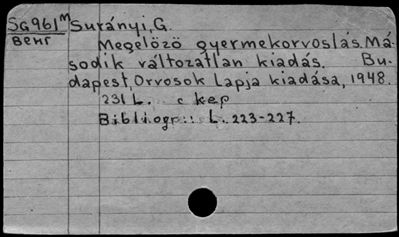 SG961ᴹ Surányi, G.
Венг Megelözö gyermekorvoslás. Má-
sodik változatlan kiadás. Bu-
dapest, Orvosok Lapja kiadása, 1948.
231 L. с кер
Bibliogr.: L. 223-227.